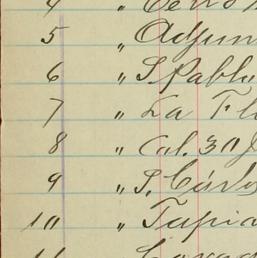 5 " Adjun
6 " S. Pablo
7 " La Fl
8 " Cal. 30 J
9 " S. Cárlos
10 " Tapia